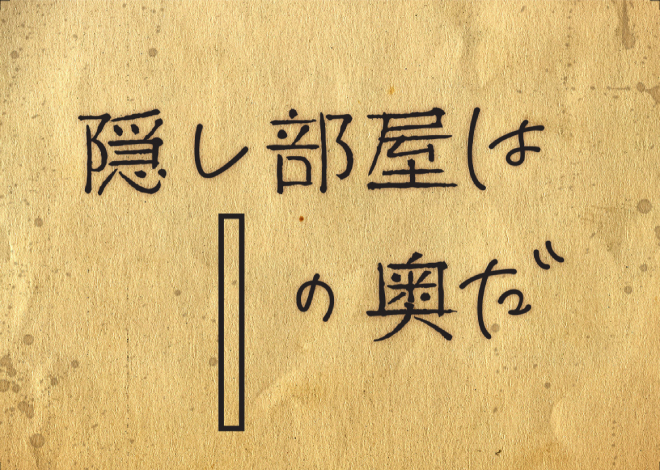 隠し部屋は
の奥だ